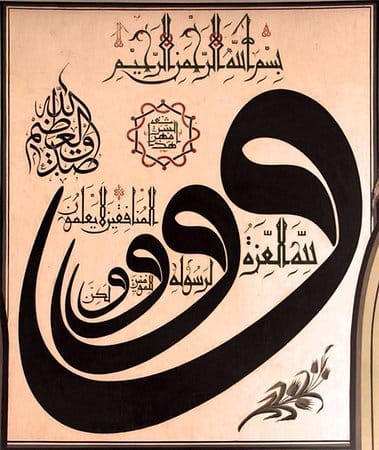 بسم الله الرحمن الرحيم
صدق الله العظيم
و لله العزة
و لرسوله
و للمؤمنين
و لكن
المنافقين لا يعلمون